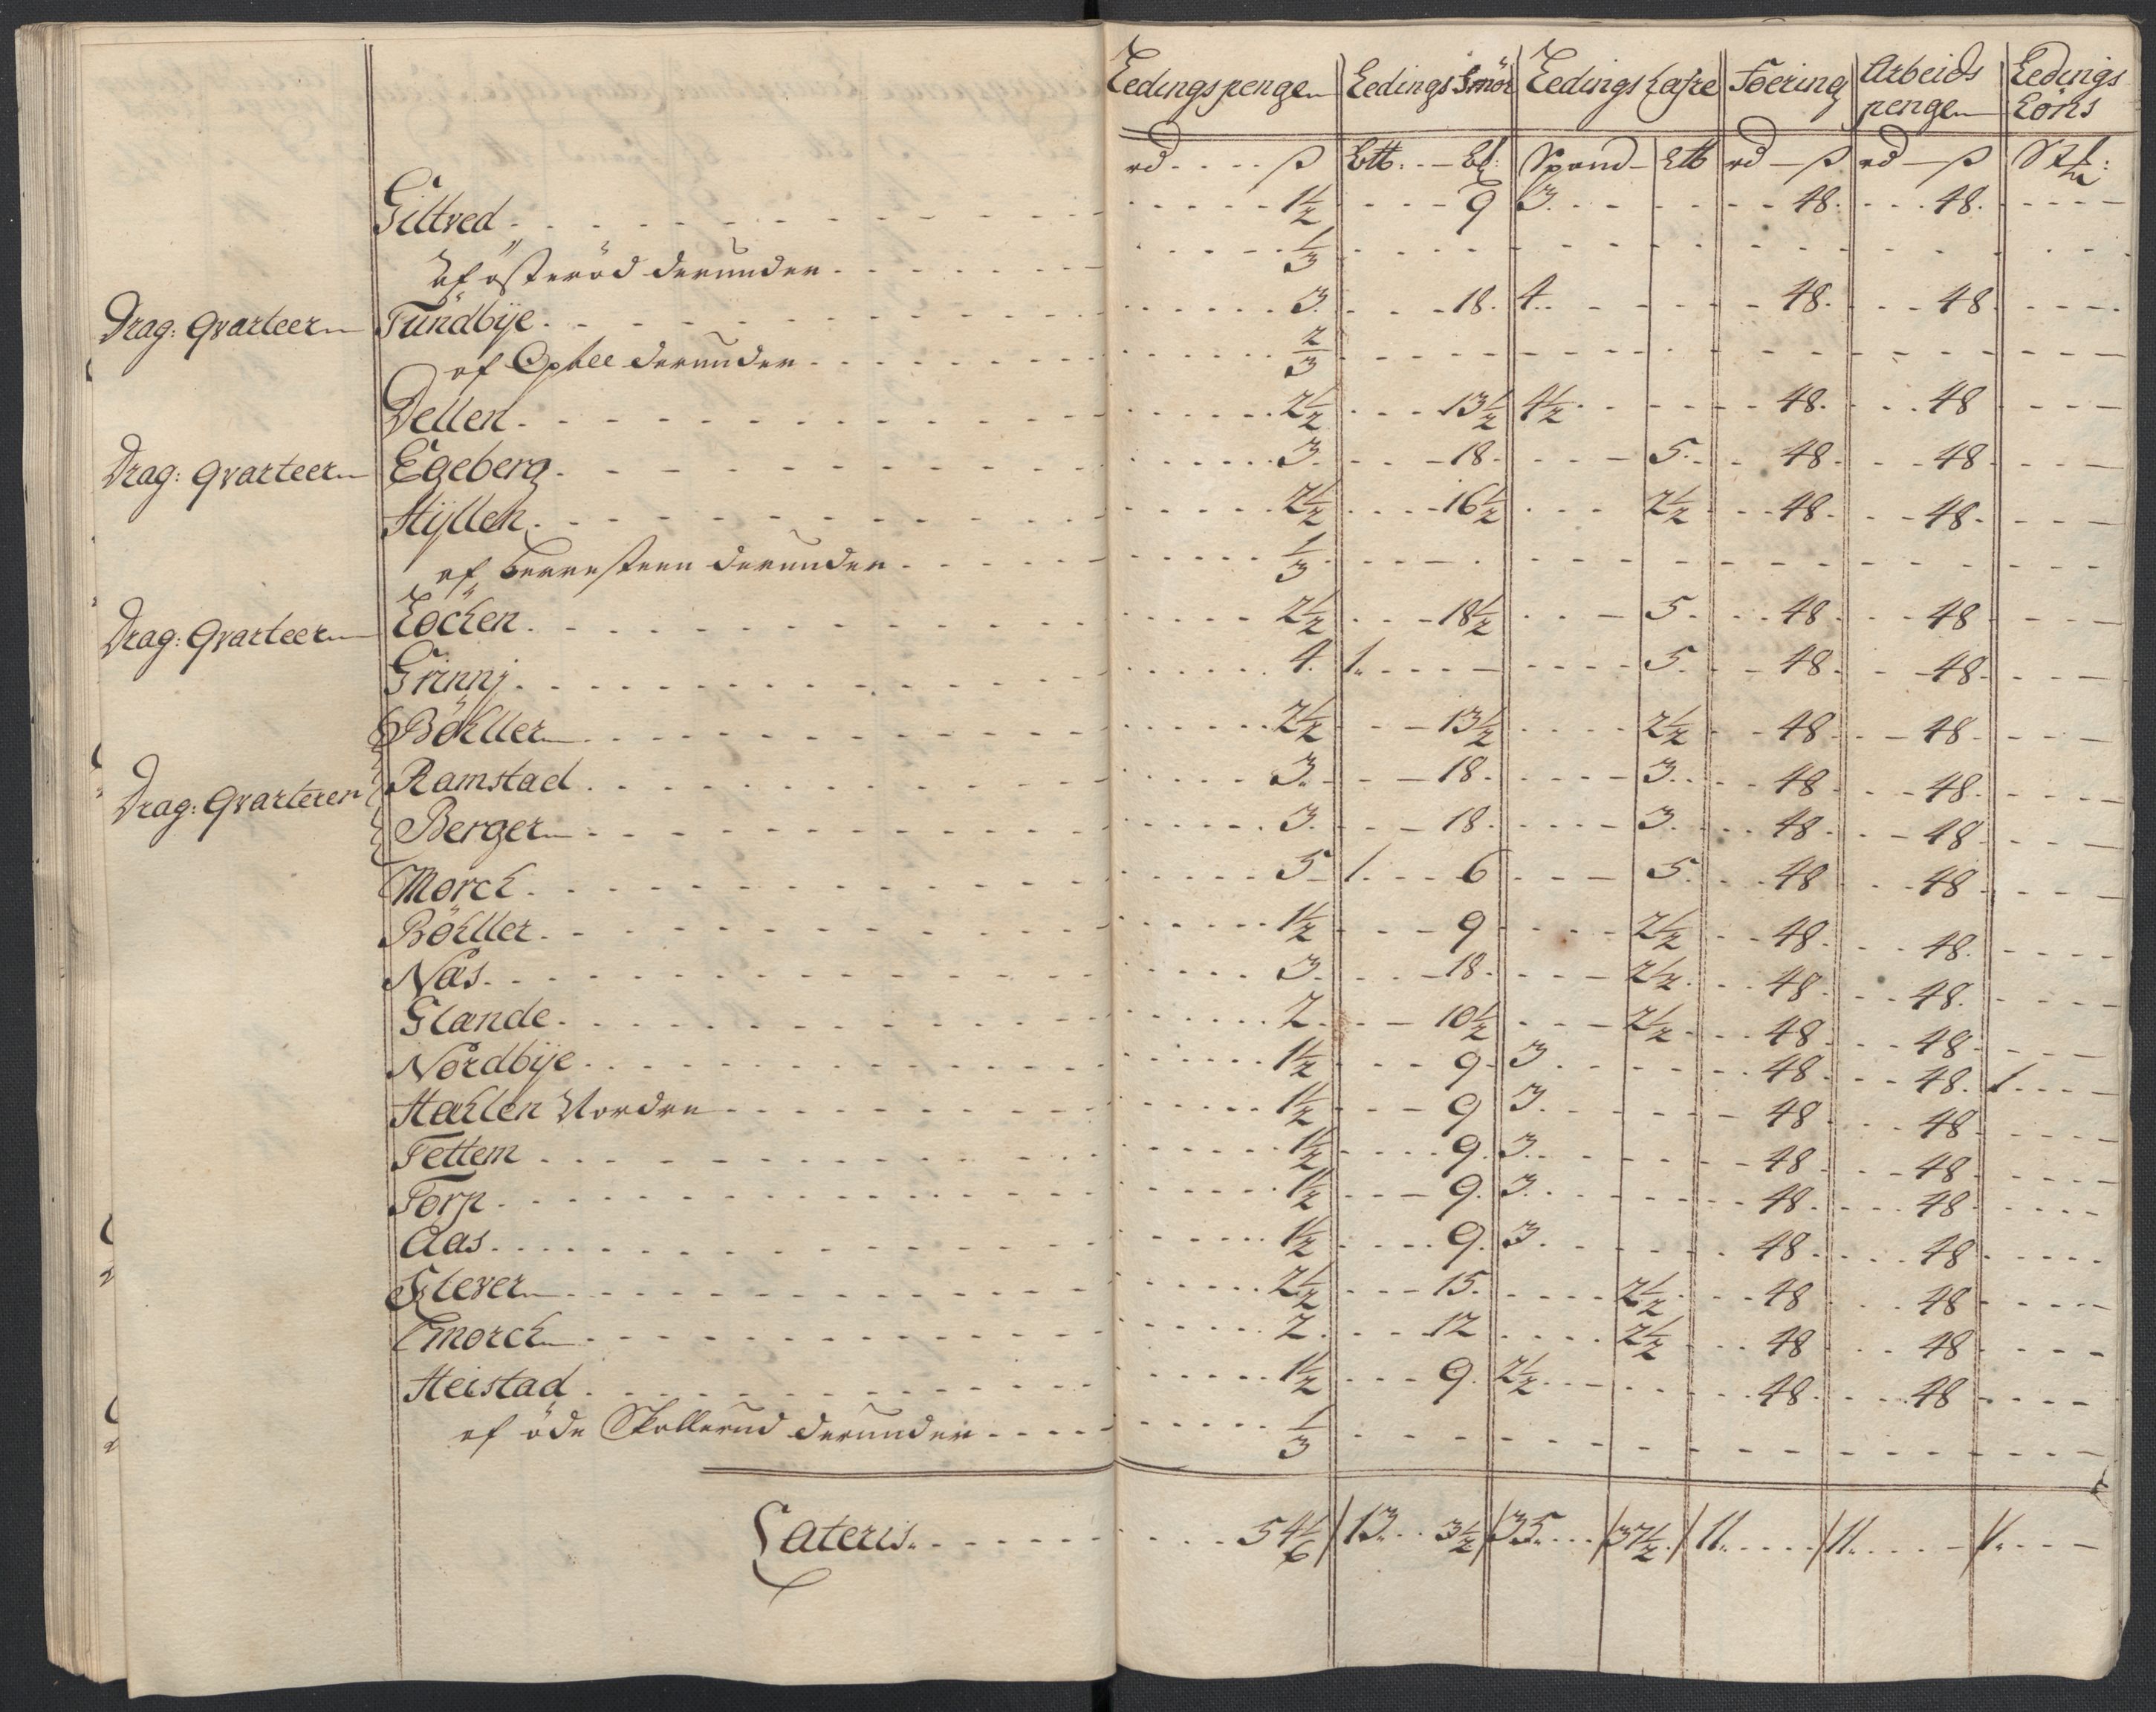 Ledingspengen | Ledings Smör | Ledings Hafre | Foering | Arbeids pengen | Ledings
rd ß | ß | Spand | rd ß | rd ß
Gilltved 1½ 9 3 48 48
af österöd derunder ⅓
Drag: Qvarteer Tündbÿe 3 18 4 48 48
af derunder ⅔
Dellen 2½ 13½ 4½ 48 48
Drag: qvarteer Egeberg 3 18 5 48 48
Hÿllen 2½ 16½ 2½ 48 48
af derunder ⅓
Drag: Qvarteer Löchen 2½ 18½ 5 48 48
Grinnj 4 1 5 48 48
Böhller 2½ 13½ 2½ 48 48
Drag: Qvarteren Ramstad 3 18 3 48 48
Berger 3 18 3 48 48
Morch 5 1 6 5 48 48
Böhller 1½ 9 2½ 48 48
Næs 3 18 2½ 48 48
Glande 2 10½ 2½ 48 48
Nordbÿe 1½ 9 3 48 48 1
Hahlen Nordre 1½ 9 3 48 48
Tettem 1½ 9 3 48 48
Torp 1½ 9 3 48 48
Aas 1½ 9 3 48 48
Klever 2½ 15 2½ 48 48
Morch 2 12 2½ 48 48
Heistad 1½ 9 2½ 48 48
af öde Skollerud derunder ⅓
Lateris 54⅙ / 13 3½ / 35 / 37½ / 11 / 11 / 1